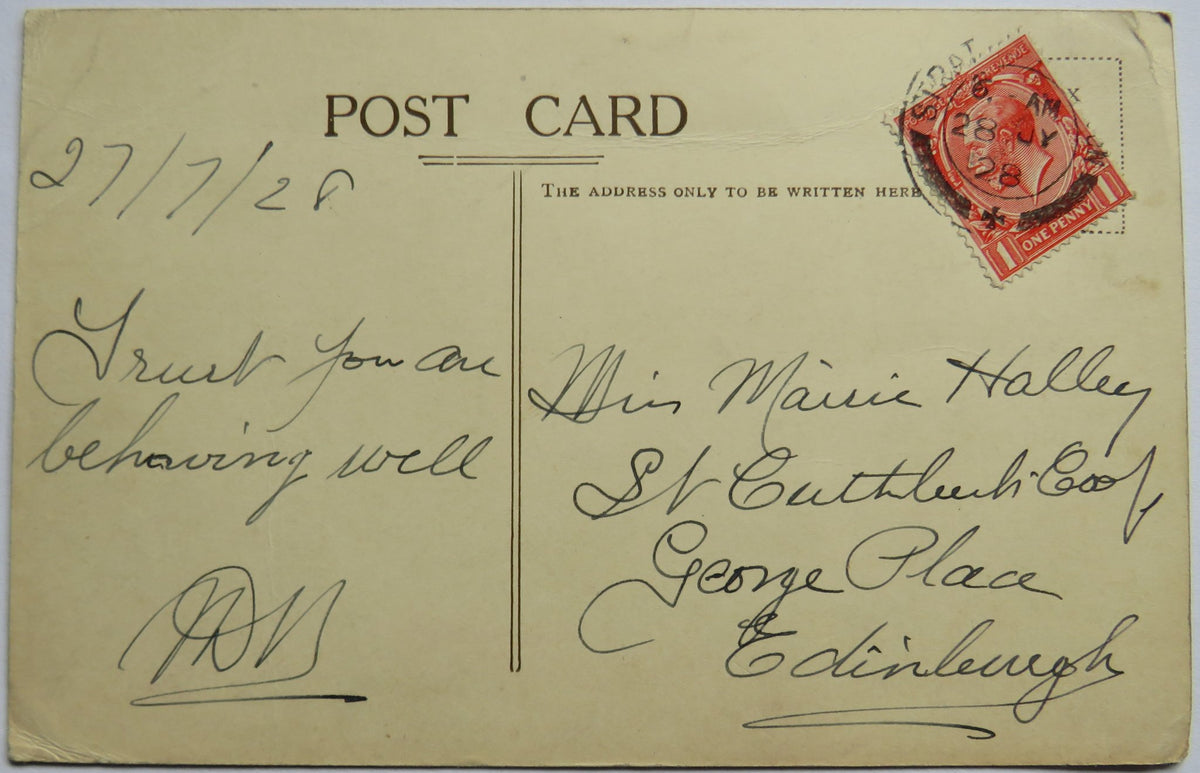 POST CARD
THE ADDRESS ONLY TO BE WRITTEN HERE
27/7/28
Trust you are
behaving well
Miss Mairie Halley
St Cuthbert's Coop,
George Place
Edinburgh
REVENUE
AM
28 JY
28
1 ONE PENNY 1